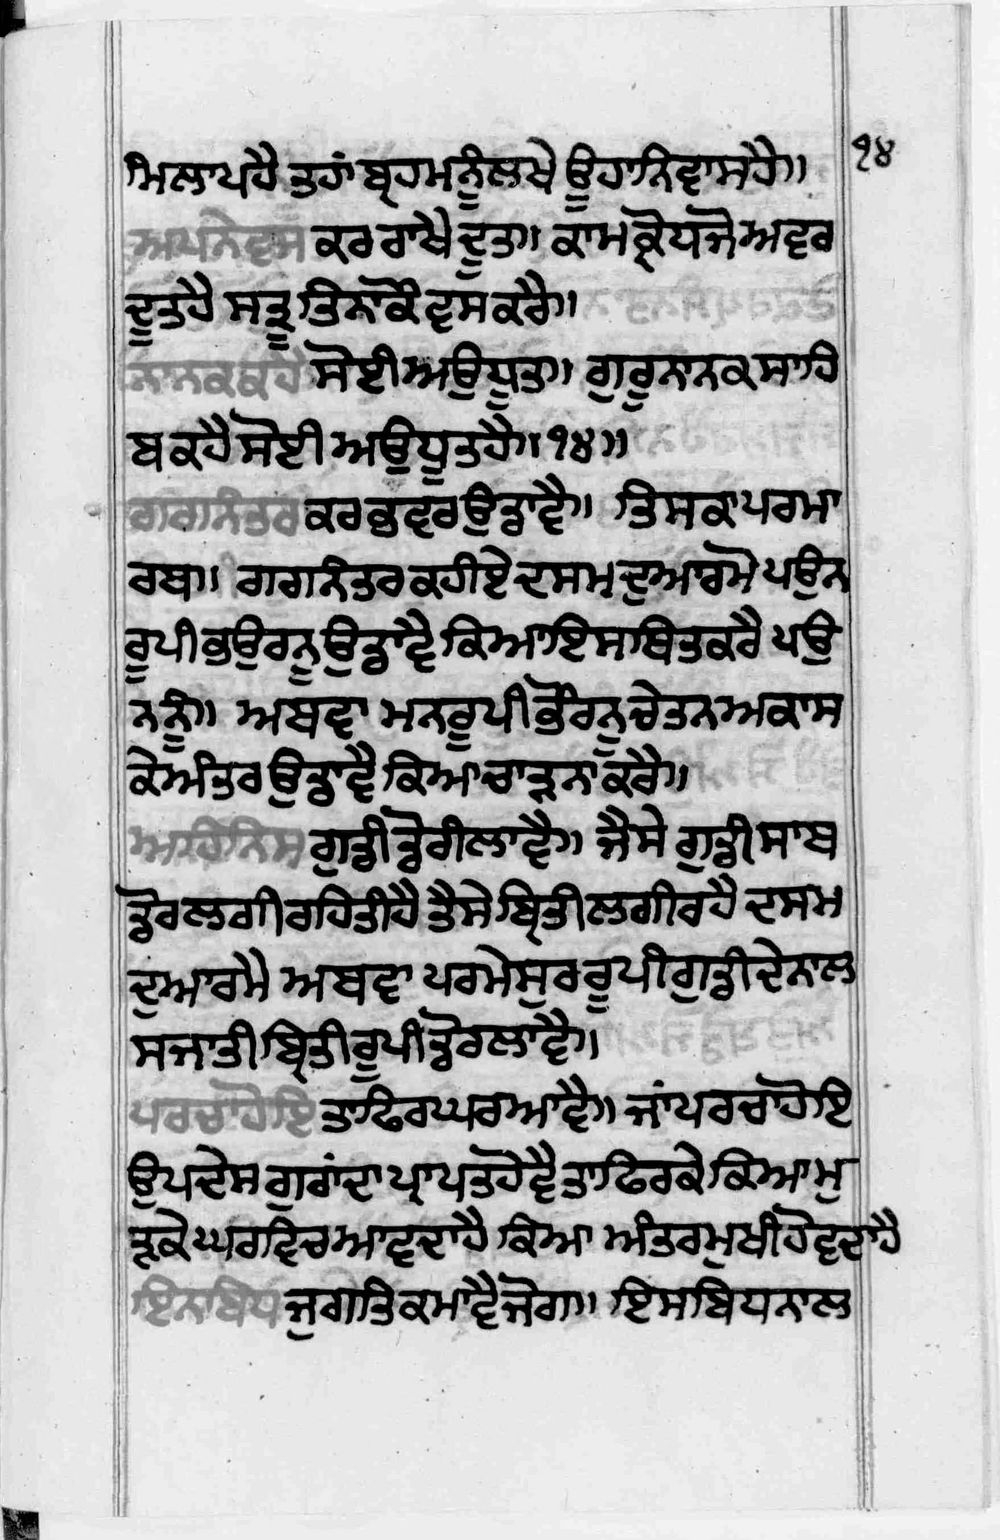 ੧੪
ਮਿਲਾਪਹੈ ਤਹਾਂ ਬ੍ਰਹਮਨੂੰਲਖੇ ਊਹਾਨਿਵਾਸਹੈ॥
ਅਪਨੇਵਸ ਕਰ ਰਾਖੈ ਦੂਤਾ॥ ਕਾਮਕ੍ਰੋਧਜੋਅਵਰ
ਦੂਤਹੈ ਸਤ੍ਰੂ ਤਿਨਾਂਕੌ ਵਸਕਰੈ॥
ਨਾਨਕਕਹੈ ਸੋਈਅਉਧੂਤਾ॥ ਗੁਰੂਨਾਨਕਸਾਹਿ
ਬਕਹੈਸੋਈ ਅਉਧੂਤਹੈ॥੧੪॥
ਗਗਨੰਤਰ ਕਰ ਭਵਰ ਉਡਾਵੈ॥ ਤਿਸਕਾਪਰਮਾ
ਰਥਾ॥ ਗਗਨੰਤਰਕਹੀਏਦਸਮਦੁਆਰਮੋ ਪਉਨ
ਰੂਪੀਭਉਰਨੂਉਡਾਵੈ ਕਿਆਇਸਥਿਤਕਰੈ ਪਉ
ਨਨੂੰ॥ ਅਥਵਾ ਮਨਰੂਪੀਭੌਰਨੂਚੇਤਨਅਕਾਸ
ਕੇਅੰਤਰ ਉਡਾਵੈ ਕਿਆਚਾੜਨਾਕਰੈ॥
ਅਹਿਨਿਸ ਗੁਡੀਡੋਰੀਲਾਵੈ॥ ਜੈਸੇ ਗੁਡੀਸਾਥ
ਡੋਰਲਗੀਰਹਿਤੀਹੈ ਤੈਸੇ ਬ੍ਰਿਤੀਲਗੀਰਹੈ ਦਸਮ
ਦੁਆਰਮੈ ਅਥਵਾ ਪਰਮੇਸੁਰਰੂਪੀਗੁਡੀਦੇਨਾਲ
ਸਜਾਤੀਬ੍ਰਿਤੀਰੂਪੀਡੋਰਲਾਵੈ॥
ਪਰਚਾਹੋਇ ਤਾਫਿਰਘਰਆਵੈ॥ ਜਾਂਪਰਚਾਹੋਇ
ਉਪਦੇਸ ਗੁਰਾਂਦਾ ਪ੍ਰਾਪਤਹੋਵੈ ਤਾਫਿਰਕੇ ਕਿਆਮੁ
ੜਕੇਘਰਵਿਚਆਵਦਾਹੈ ਕਿਆ ਅੰਤਰਮੁਖੀਹੋਵਦਾਹੈ
ਇਨਬਿਧ ਜੁਗਤਿਕਮਾਵੈਜੋਗ॥ ਇਸਬਿਧਨਾਲ